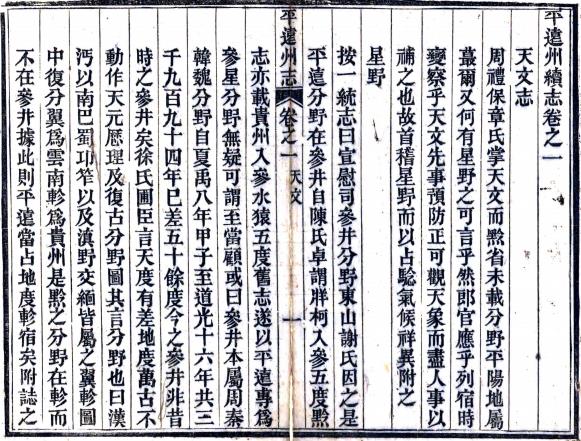 平遠州續志卷之一
天文志
周禮保章氏掌天文而黔省未載分野平陽地屬
蕞爾又何有星野之可言乎然郎官應乎列宿時
變察乎天文先事預防正可觀天象而盡人事以
補之也故首稽星野而以占驗氣候祥異附之
星野
按一統志曰宣慰司參井分野東山謝氏因之是
平遠分野在參井自陳氏卓謂牂柯入參五度黔
平遠州志 卷之一 天文 一
志亦載貴州入參水猿五度舊志遂以平遠專爲
參星分野無疑可謂至當顧或曰參井本屬周秦
韓魏分野自夏禹八年甲子至道光十六年共三
千九百九十四年巳差五十餘度今之參井非昔
時之參井矣徐氏圃臣言天度有差地度萬古不
動作天元厯理及復古分野圖其言分野也曰漢
沔以南巴蜀卭笮以及滇野交緬皆屬之翼軫圖
中復分翼爲雲南軫爲貴州是黔之分野在軫而
不在參井據此則平遠當占地度軫宿矣附誌之